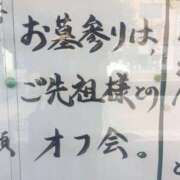 お墓参りは、
ご先祖様との
オフ会。